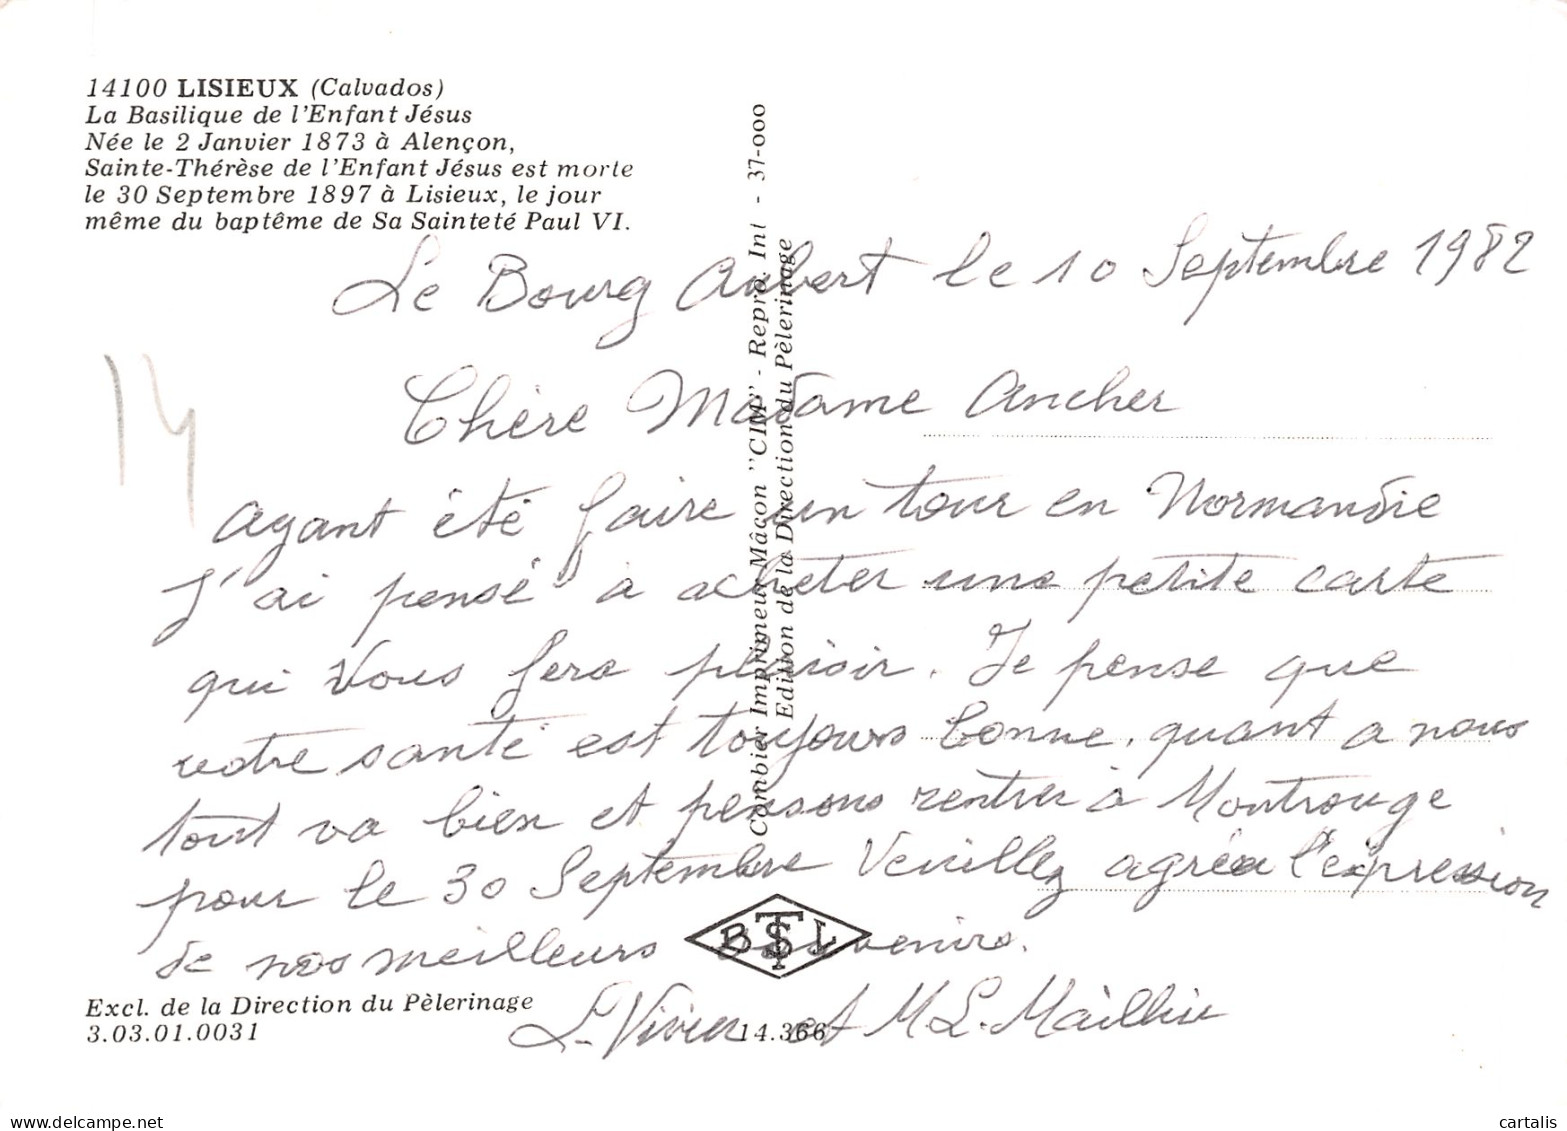 14100 LISIEUX (Calvados)
La Basilique de l'Enfant Jésus
Née le 2 Janvier 1873 à Alençon,
Sainte-Thérèse de l'Enfant Jésus est morte
le 30 Septembre 1897 à Lisieux, le jour
même du baptême de Sa Sainteté Paul VI.
Le Bourg Aubert le 10 Septembre 1982
Chère Madame Ancher
ayant été faire un tour en Normandie
J'ai pensé à acheter une petite carte
qui vous fera plaisir. Je pense que
votre santé est toujours bonne, quant a nous
tout va bien et pensons rentrer à Montrouge
pour le 30 Septembre Veuillez agréer l'expression
de nos meilleurs souvenirs.
L. Vivier et M L. Mailhie
Combier Imprimeur Mâcon "CIM" - Repro. Int - 37-000
Edition de la Direction du Pèlerinage
BTSL
14
Excl. de la Direction du Pèlerinage
3.03.01.0031
14.366
delcampe.net
cartalis